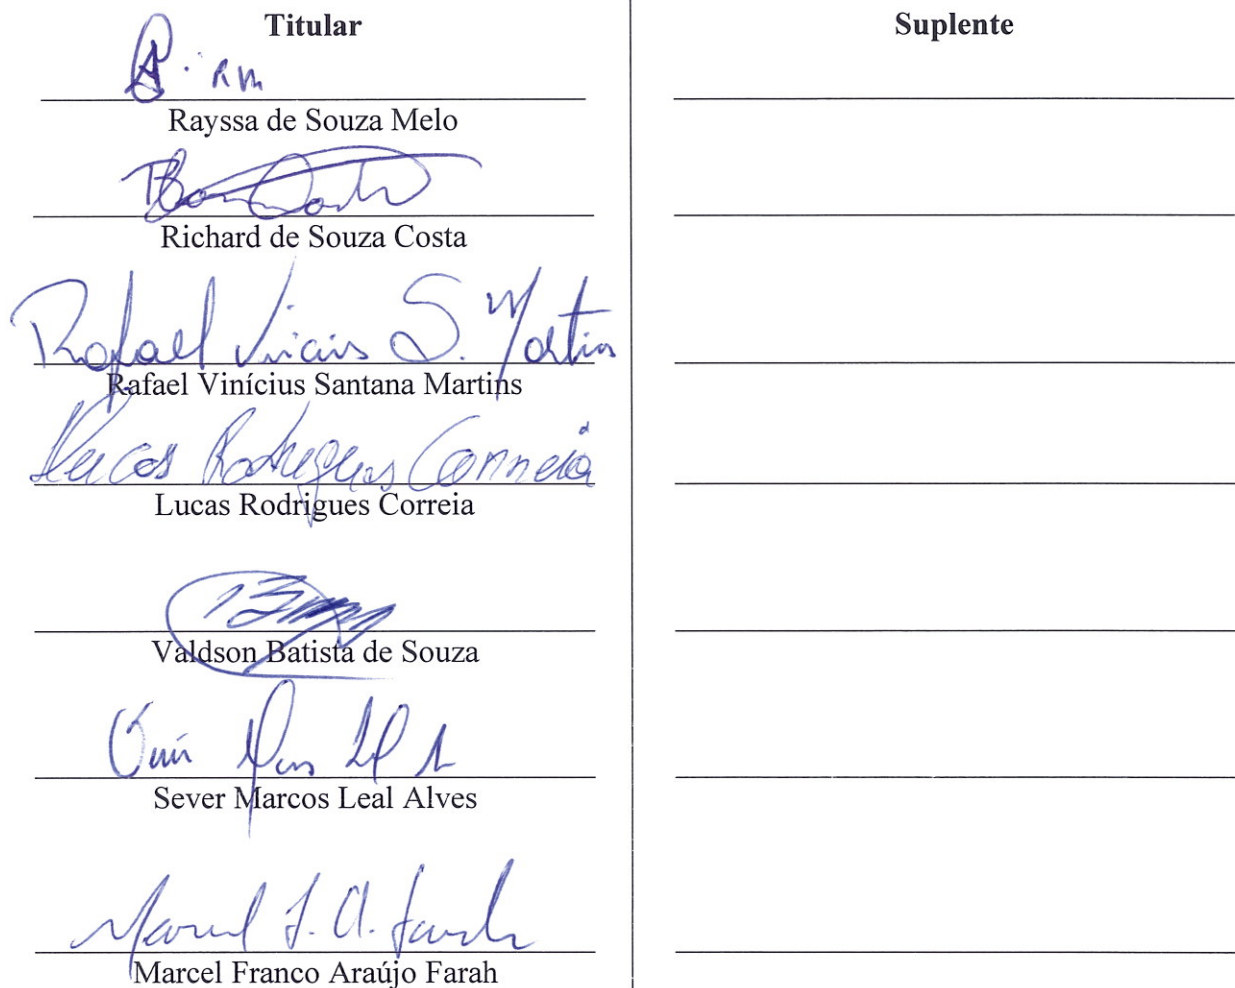 Titular
Suplente
Rayssa de Souza Melo
Richard de Souza Costa
Rafael Vinicius S. Martins
Rafael Vinícius Santana Martins
Lucas Rodrigues Correia
Lucas Rodrigues Correia
Valdson Batista de Souza
Sever Marcos Leal Alves
Marcel F. A. Farah
Marcel Franco Araújo Farah